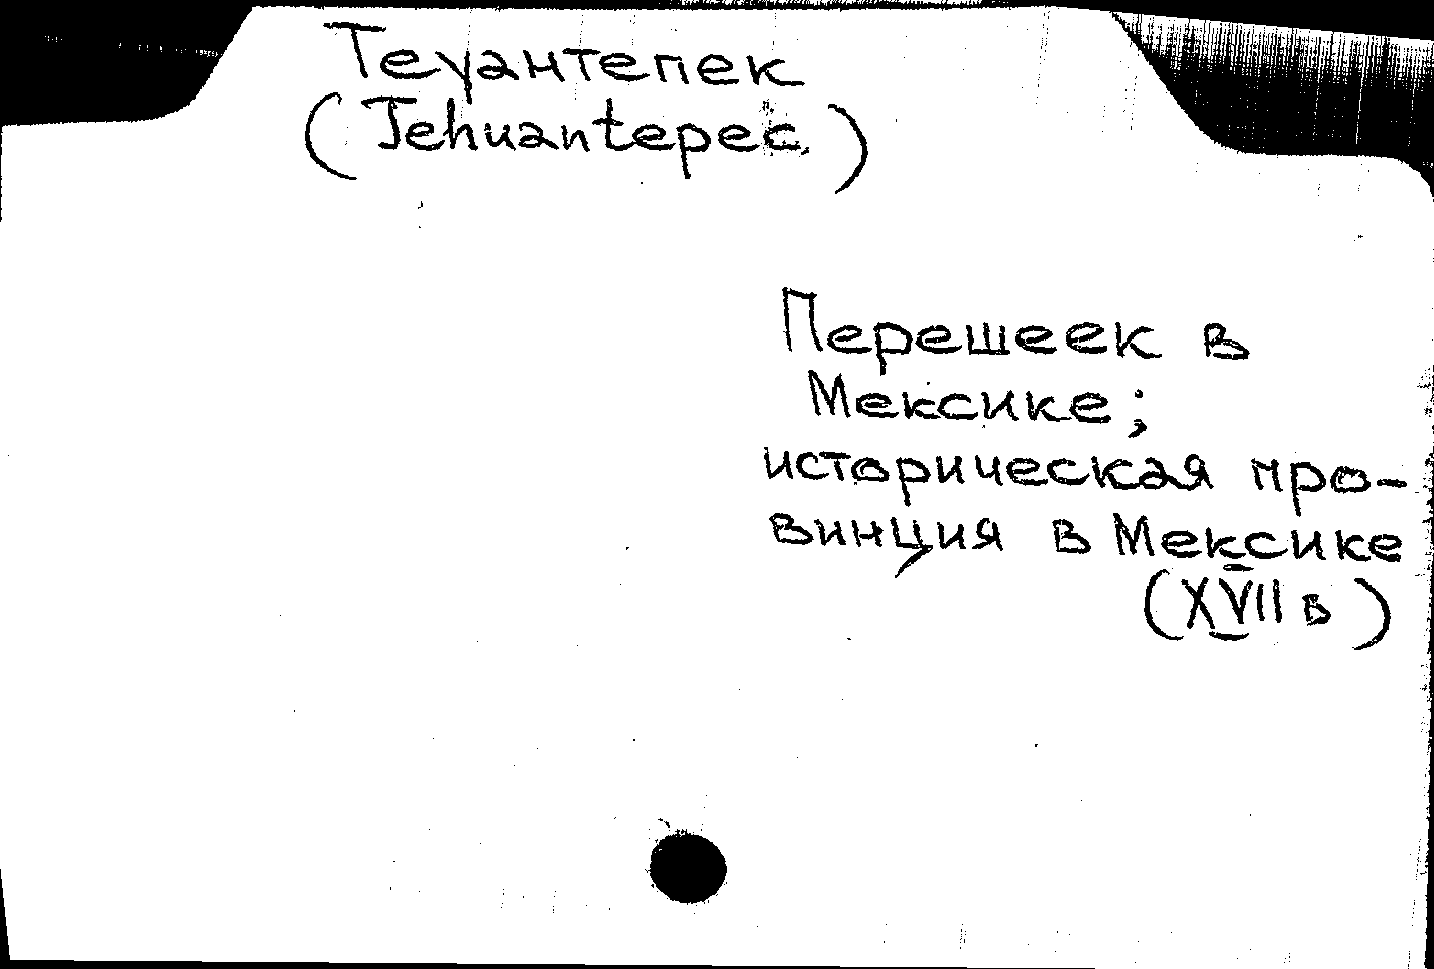 Теуантепек
(Tehuantepec)
Перешеек в
Мексике;
историческая про-
винция в Мексике
(XVII в)